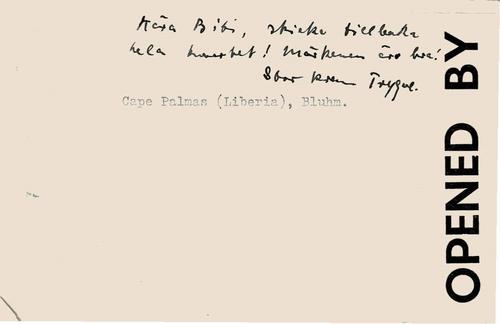 Kära Bibi, skicka tillbaka
hela kuvertet! Märkenen äro bra!
Stor kram Trygve.
Cape Palmas (Liberia), Bluhm.
OPENED BY